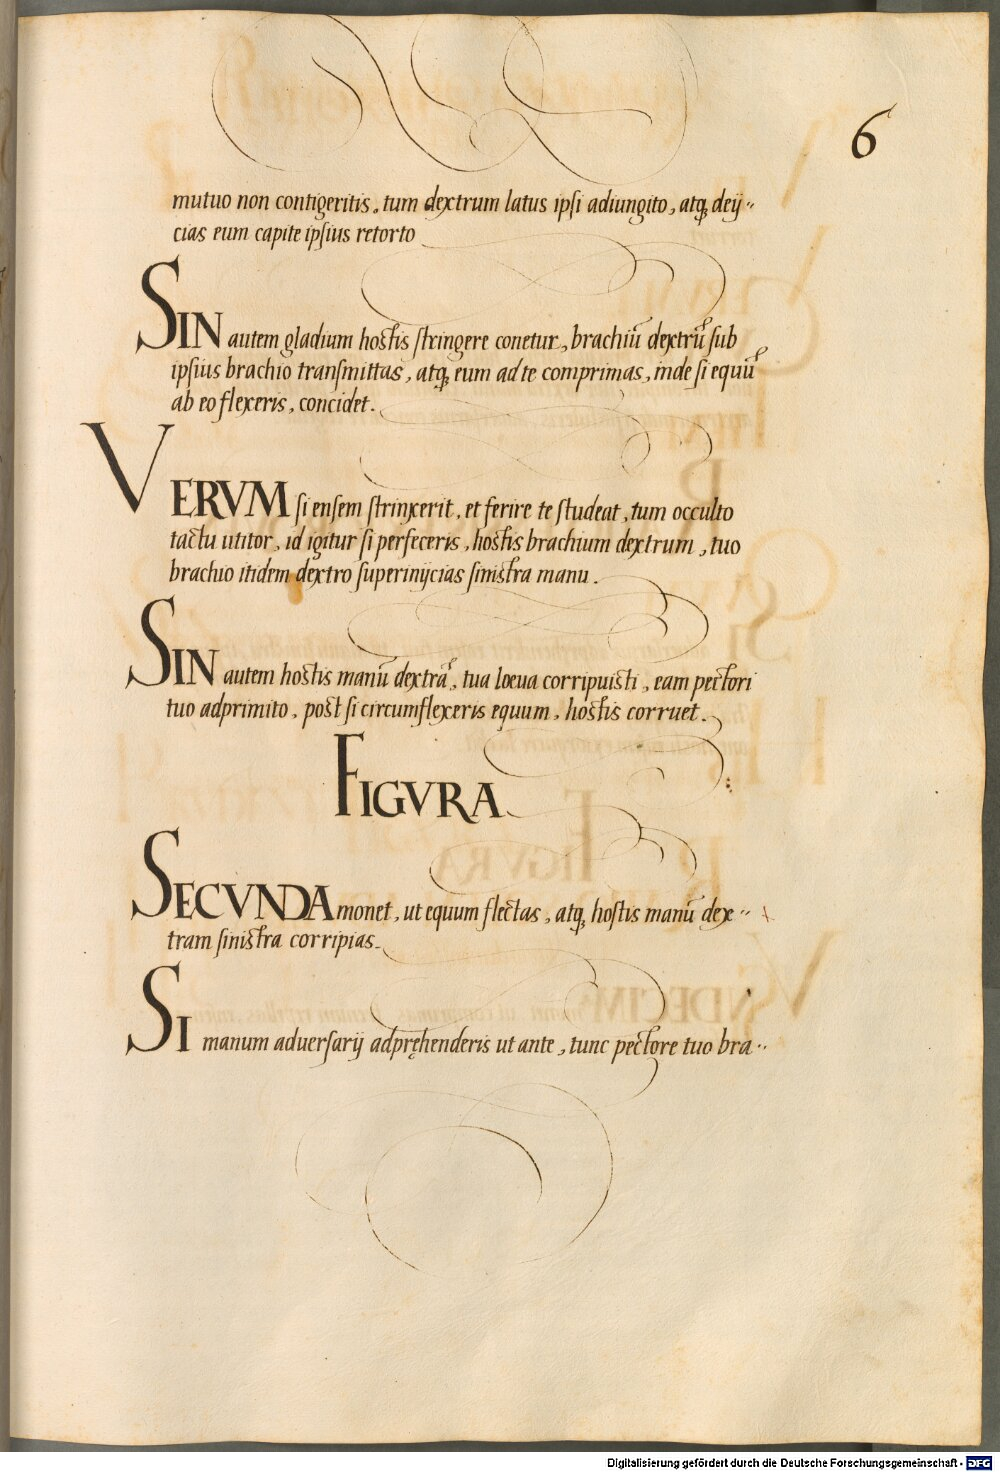 6
mutuo non contigeritis, tum dextrum latus ipsi adiungito, atq̨ deij„
cias eum capite ipsius retorto
SIN autem gladium hostis stringere conetur, brachiū dextrū sub
ipsius brachio transmittas, atq̨ eum ad te comprimas, inde si equū
ab eo flexeris, concidet.
VERVM si ensem strinxerit, et ferire te studeat, tum occulto
tactu utitor, id igitur si perfeceris, hostis brachium dextrum, tuo
brachio itidem dextro superinijcias sinistra manu.
SIN autem hostis manū dextrā, tua loeva corripuisti, eam pectori
tuo adprimito, post si circumflexeris equum, hostis corruet.
FIGVRA
SECVNDA monet, ut equum flectas, atq̨ hostis manū dex„
tram sinistra corripias.
SI manum adversarij adpręhenderis ut ante, tunc pectore tuo bra„
Digitalisierung gefördert durch die Deutsche Forschungsgemeinschaft - DFG